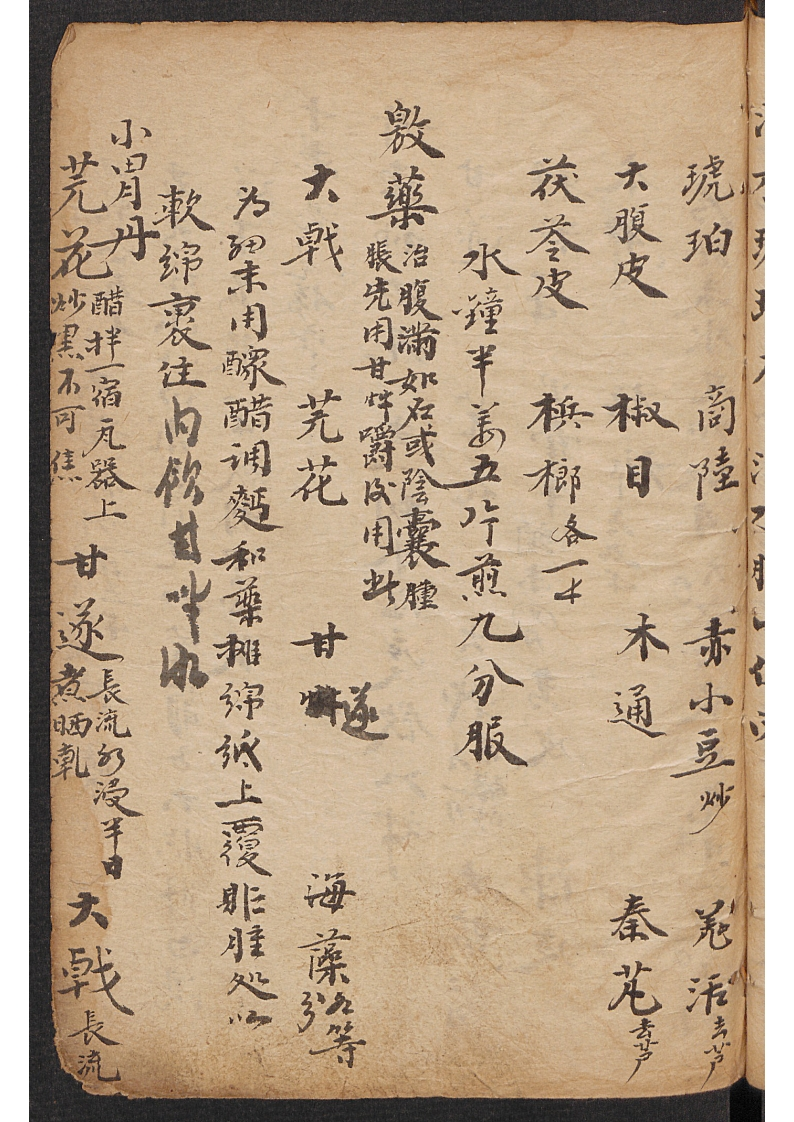 琥珀 商陸 赤小豆炒 羌活去芦
大腹皮 椒目 木通 秦艽去芦
茯苓皮 梹榔各一才
水鐘半姜五片煎九分服
敷藥治腹滿如石或陰囊腫
脹先用甘艸嚼後用此
大戟 芫花 甘遂 海藻各等分
為細末用釅醋調麪和藥攤綿紙上覆貼腫処以
軟綿裹住内飲甘艸水
小胃丹
芫花醋拌一宿瓦器上
炒黑不可焦
甘遂長流水浸半日
煮晒乾
大戟長流